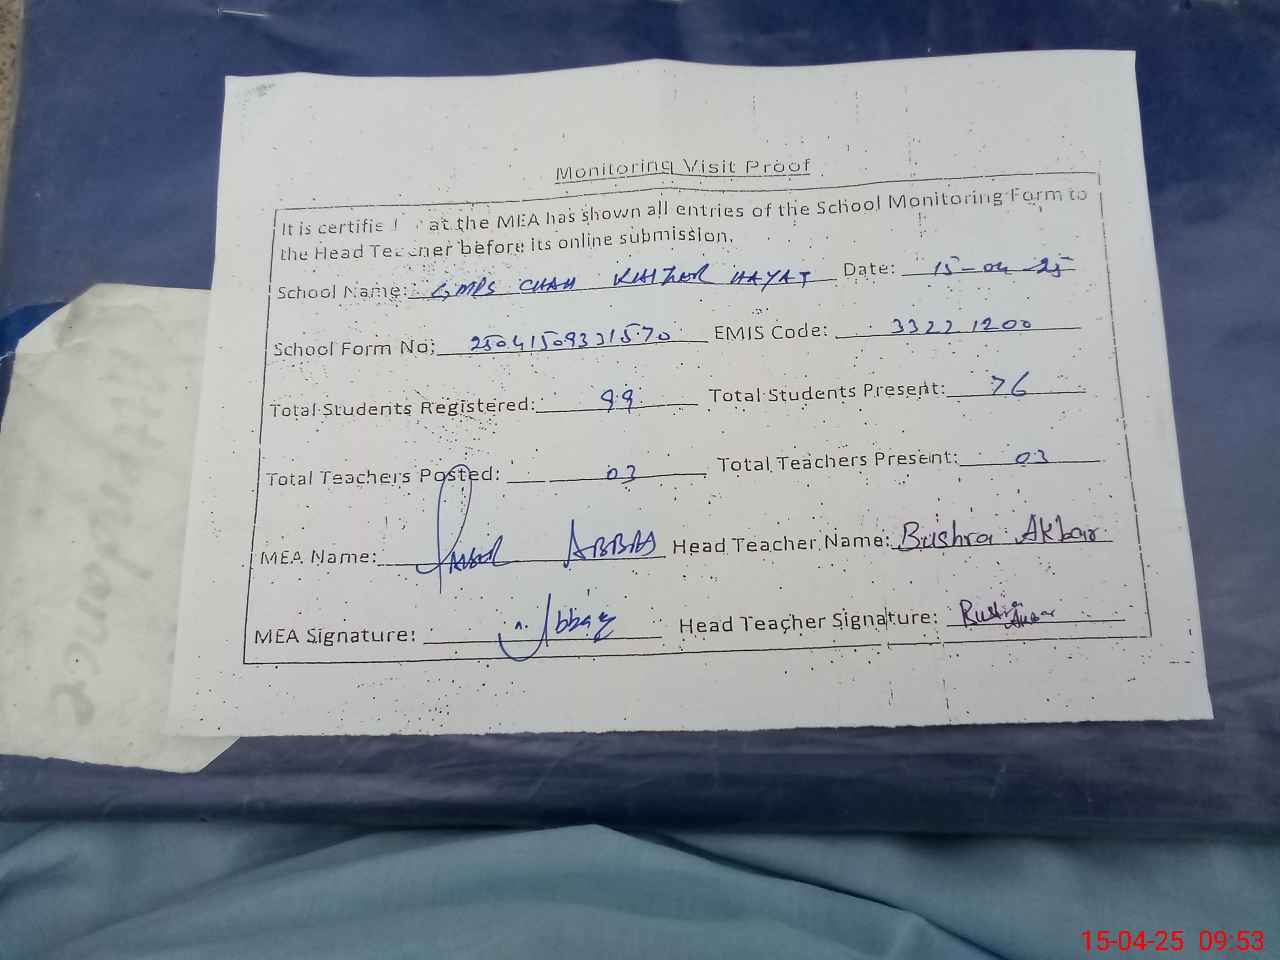 Monitoring Visit Proof
It is certifie at the MEA has shown all entries of the School Monitoring Form to
the Head Teacher before its online submission.
School Name: GMPS CHAH KHIZAR HAYAT Date: 15-04-25
School Form No: EMIS Code: 33221200
Total Students Registered: 99 Total Students Present: 76
Total Teachers Posted: 03 Total Teachers Present: 03
MEA Name: ABBAS Head Teacher Name: Bushra Akbar
MEA Signature: Abbas Head Teacher Signature: Bushra
15-04-25 09:53